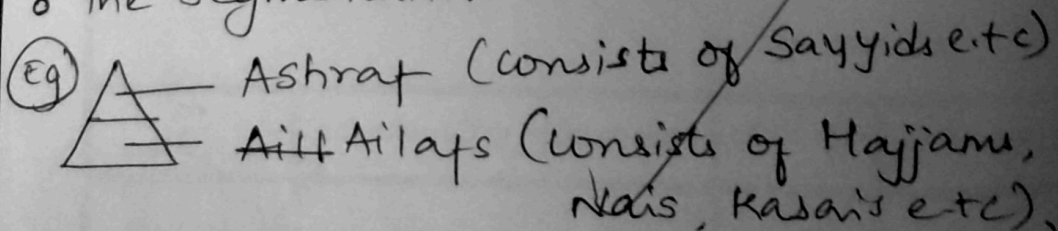 o The Segm
Eg Ashraf (consists of Sayyids e.t c)
Ailf Ailafs (consists of Hajjams,
Nais, Kasais e-tc).